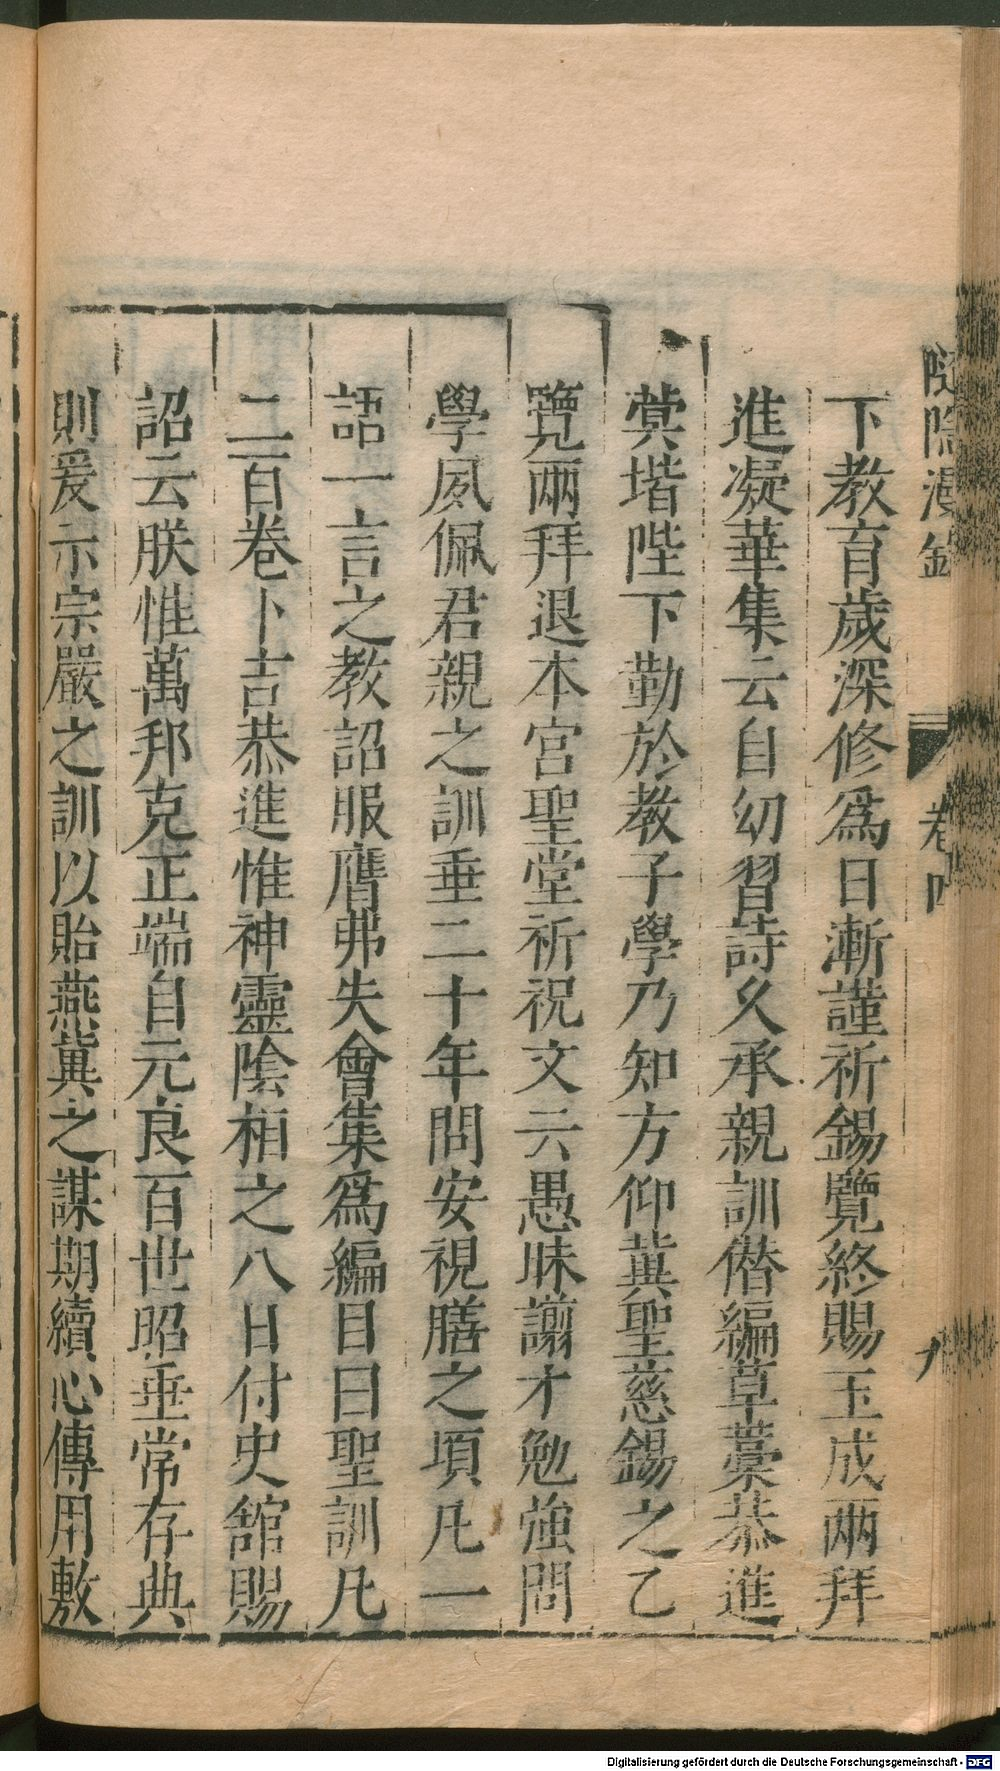 隨隱漫錄
卷四
九
下教育歲深修爲日漸謹祈錫覽終賜玉成兩拜
進凝華集云自幼習詩久承親訓僭編草藁恭進
蓂堦陛下勤於教子學乃知方仰冀聖慈錫之乙
覽兩拜退本宮聖堂祈祝文云愚昧謭才勉強問
學夙佩君親之訓垂二十年問安視膳之頃凡一
語一言之教詔服膺弗失會集爲編目曰聖訓凡
二百卷卜吉恭進惟神靈陰相之八日付史舘賜
詔云朕惟萬邦克正端自元良百世昭垂常存典
則爰示宗嚴之訓以貽燕冀之謀期續心傳用敷
Digitalisierung gefördert durch die Deutsche Forschungsgemeinschaft - DFG